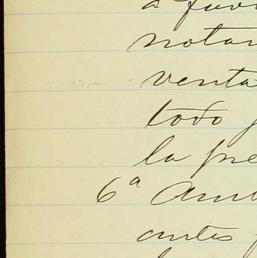 a fav
notar
venta
todo
la pre
6ª Amb
antes